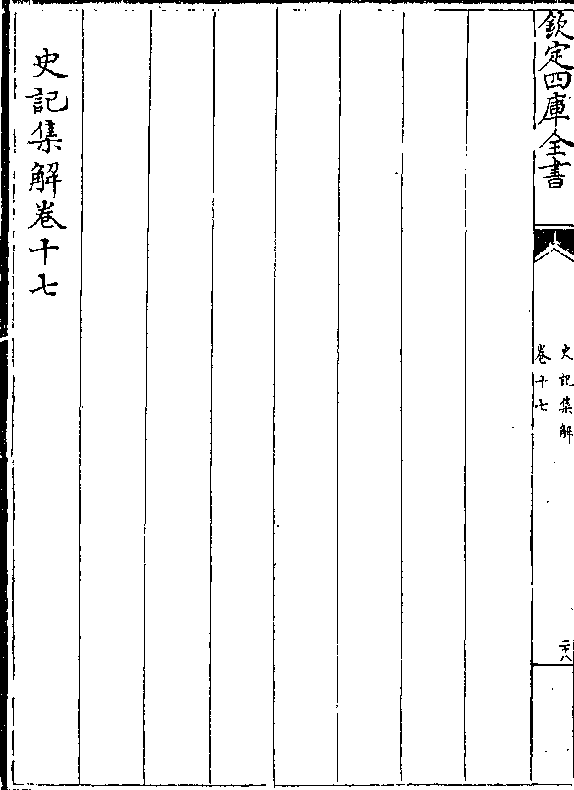 欽定四庫全書
史記集解
卷十七
二十八
史記集解卷十七